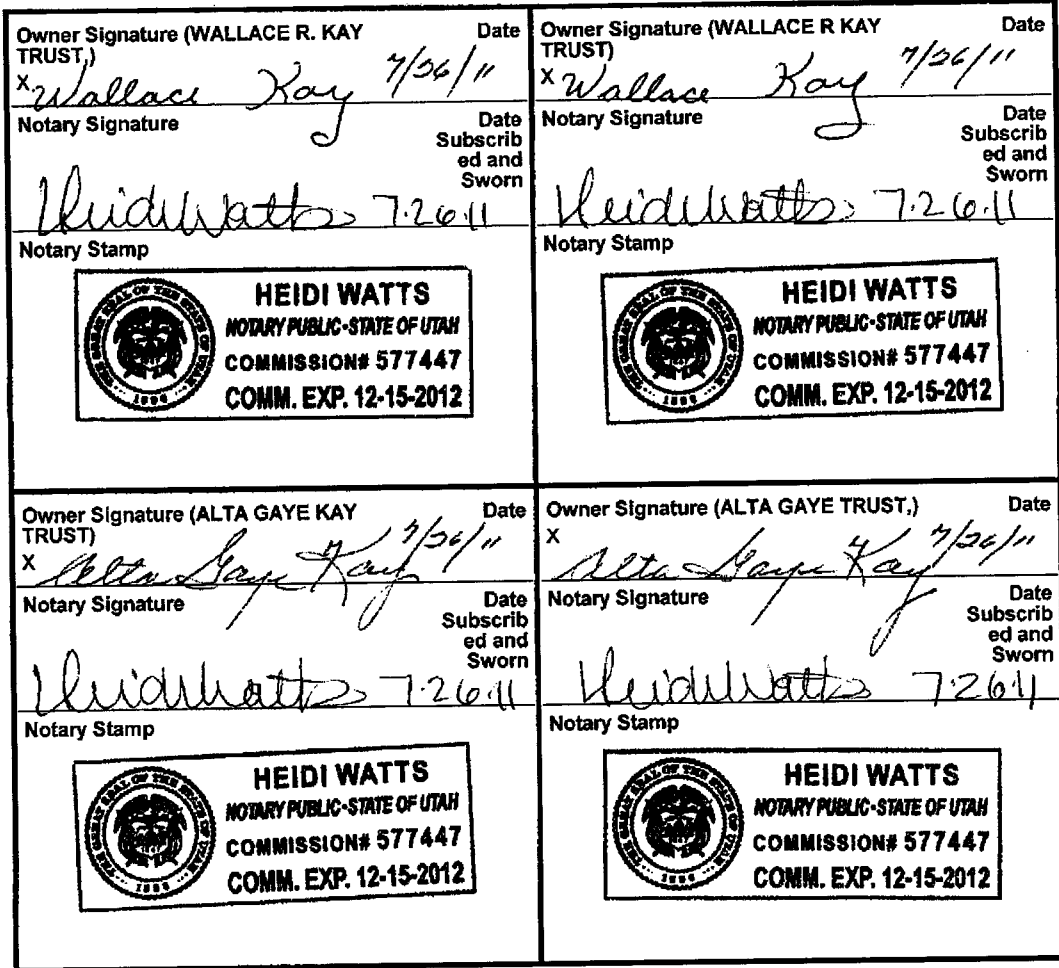 Owner Signature (WALLACE R. KAY TRUST,) Date
X Wallace Kay 7/26/11
Notary Signature Date Subscrib ed and Sworn
Heidi Watts 7.26.11
Notary Stamp
THE GREAT SEAL OF THE STATE OF UTAH
1896
HEIDI WATTS
NOTARY PUBLIC•STATE OF UTAH
COMMISSION# 577447
COMM. EXP. 12-15-2012
Owner Signature (WALLACE R KAY TRUST) Date
X Wallace Kay 7/26/11
Notary Signature Date Subscrib ed and Sworn
Heidi Watts 7.26.11
Notary Stamp
THE GREAT SEAL OF THE STATE OF UTAH
1896
HEIDI WATTS
NOTARY PUBLIC•STATE OF UTAH
COMMISSION# 577447
COMM. EXP. 12-15-2012
Owner Signature (ALTA GAYE KAY TRUST) Date
X Alta Gaye Kay 7/26/11
Notary Signature Date Subscrib ed and Sworn
Heidi Watts 7.26.11
Notary Stamp
THE GREAT SEAL OF THE STATE OF UTAH
1896
HEIDI WATTS
NOTARY PUBLIC•STATE OF UTAH
COMMISSION# 577447
COMM. EXP. 12-15-2012
Owner Signature (ALTA GAYE TRUST,) Date
X Alta Gaye Kay 7/26/11
Notary Signature Date Subscrib ed and Sworn
Heidi Watts 7.26.11
Notary Stamp
THE GREAT SEAL OF THE STATE OF UTAH
1896
HEIDI WATTS
NOTARY PUBLIC•STATE OF UTAH
COMMISSION# 577447
COMM. EXP. 12-15-2012